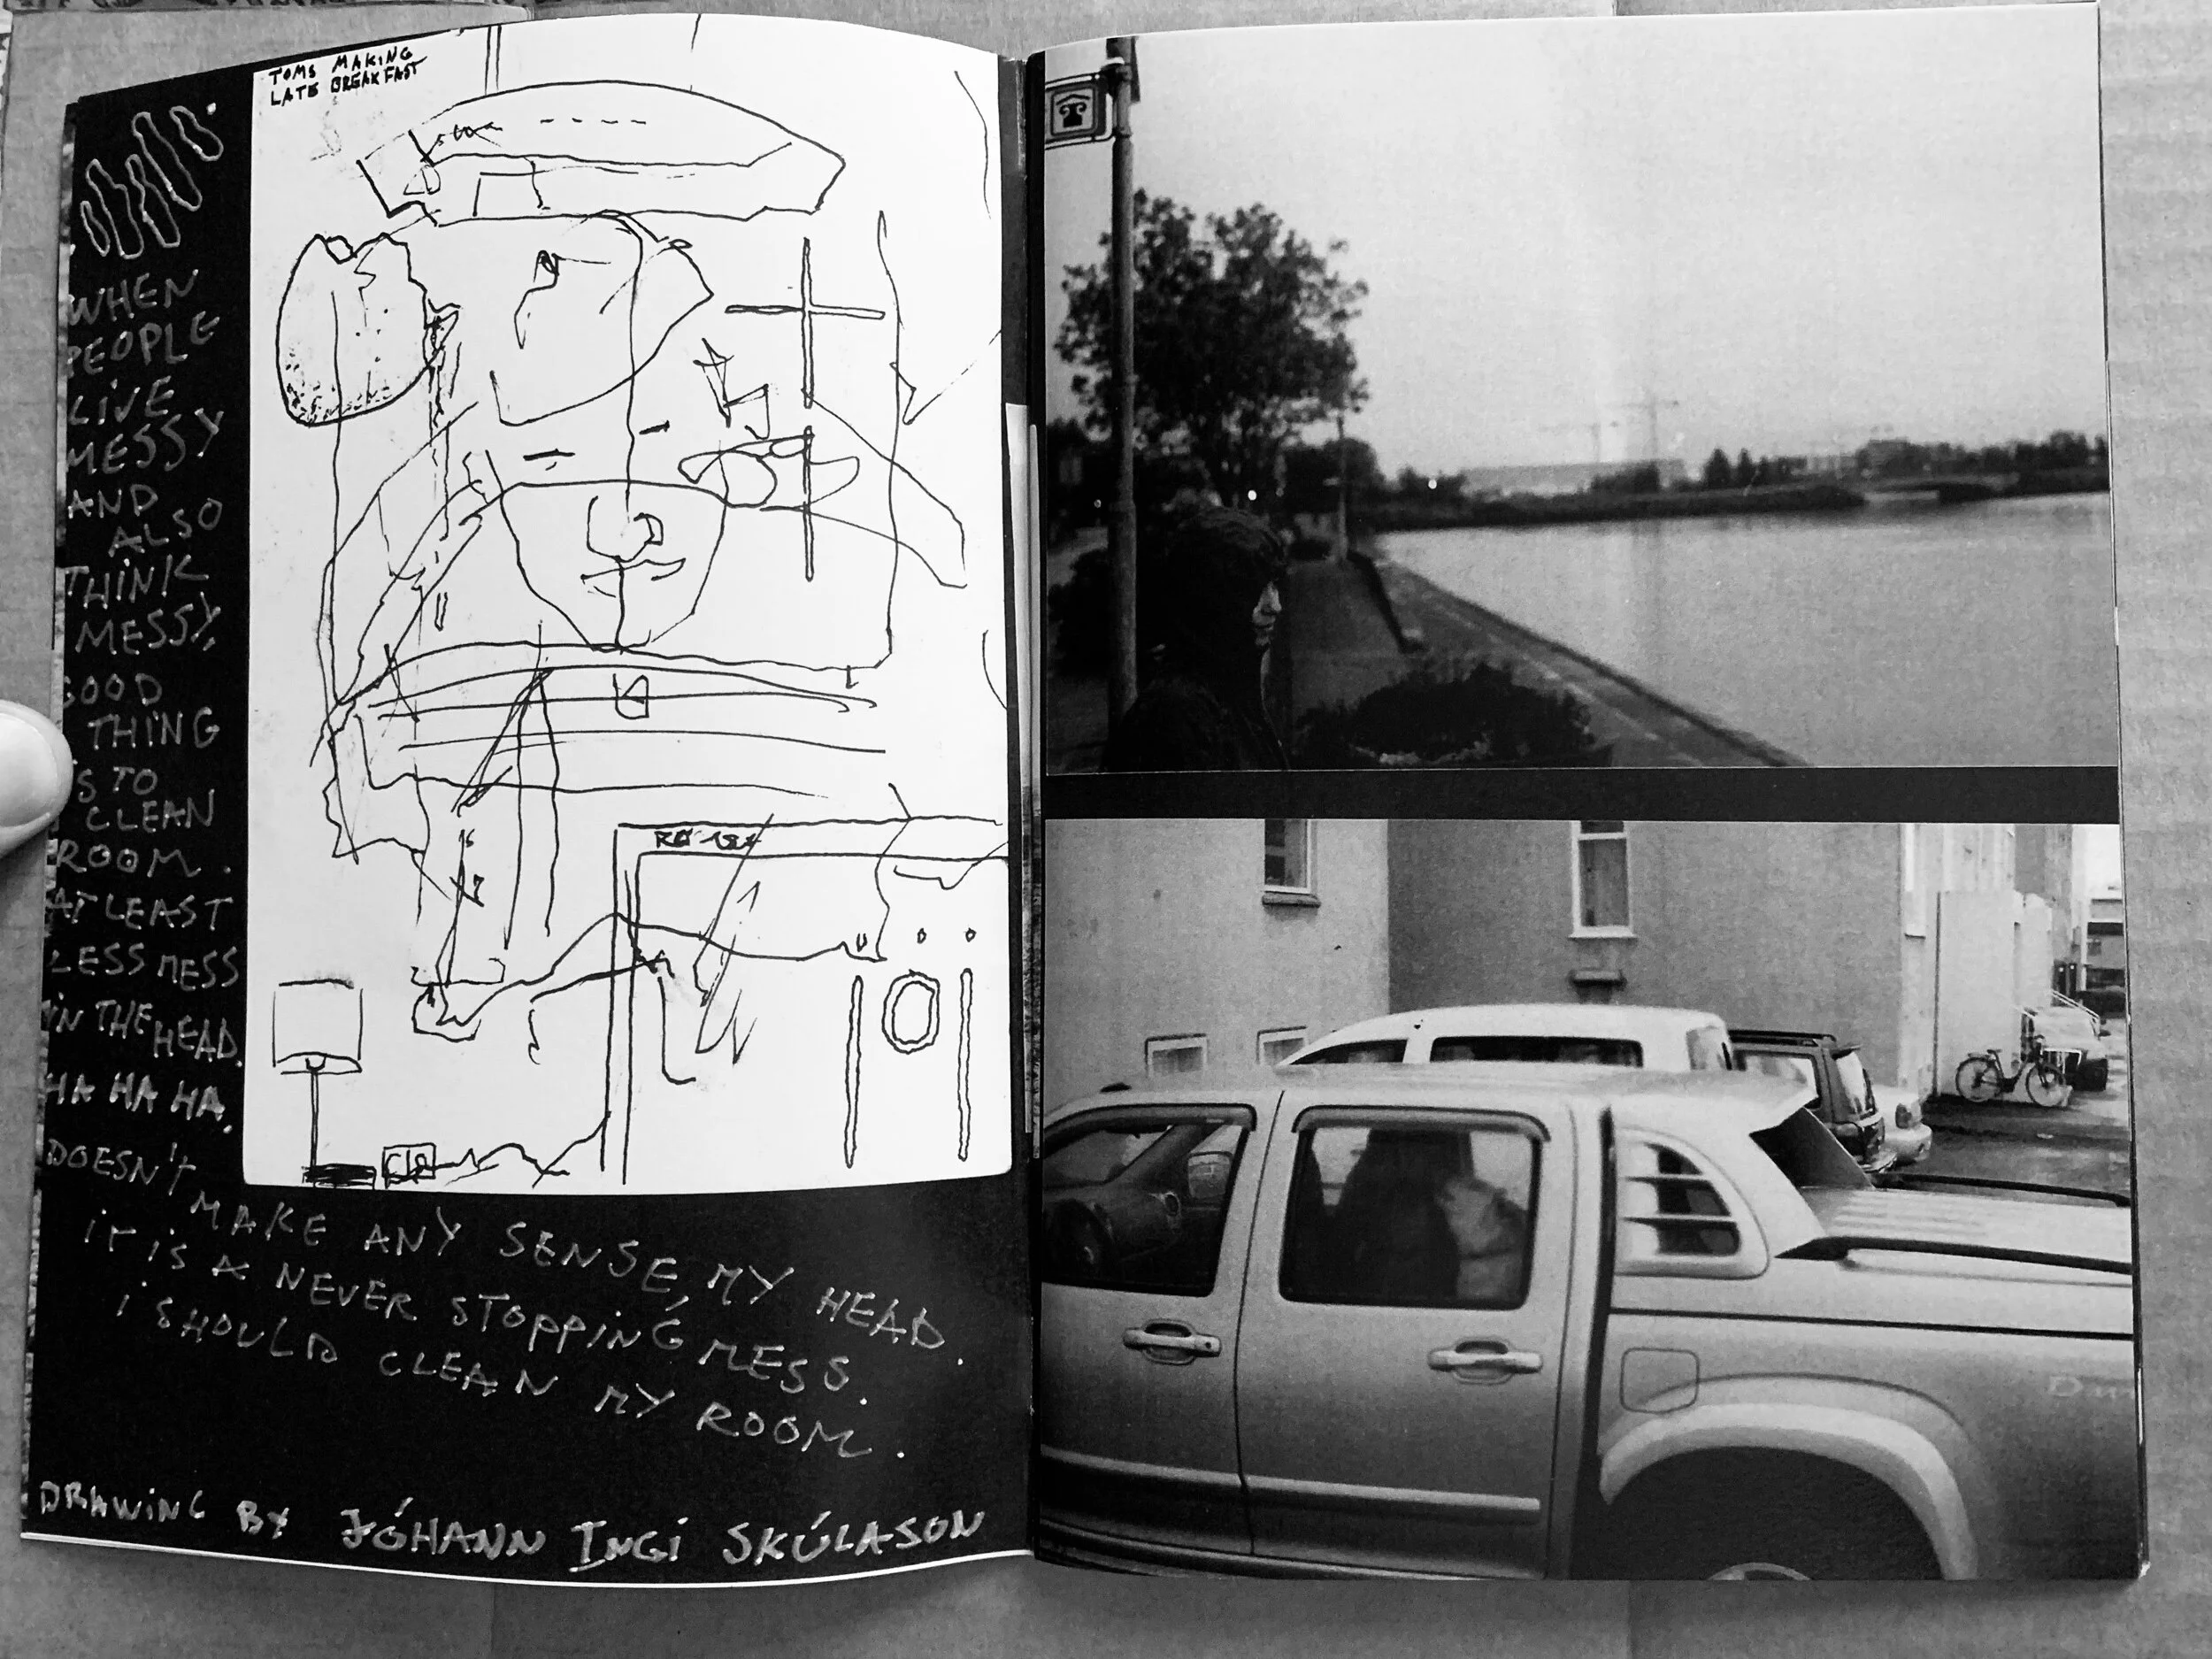 TOMS MAKING
LATE BREAKFAST
WHEN
PEOPLE
LIVE
MESSY
AND
ALSO
THINK
MESSY,
GOOD
THING
IS TO
CLEAN
ROOM.
AT LEAST
LESS MESS
IN THE
HEAD.
HA HA HA.
DOESN'T
MAKE ANY SENSE, MY HEAD.
iT iS A NEVER STOPPiNG MESS.
i SHOULD CLEAN MY ROOM.
DRAWiNG BY JÓHANN INGi SKÚLASON